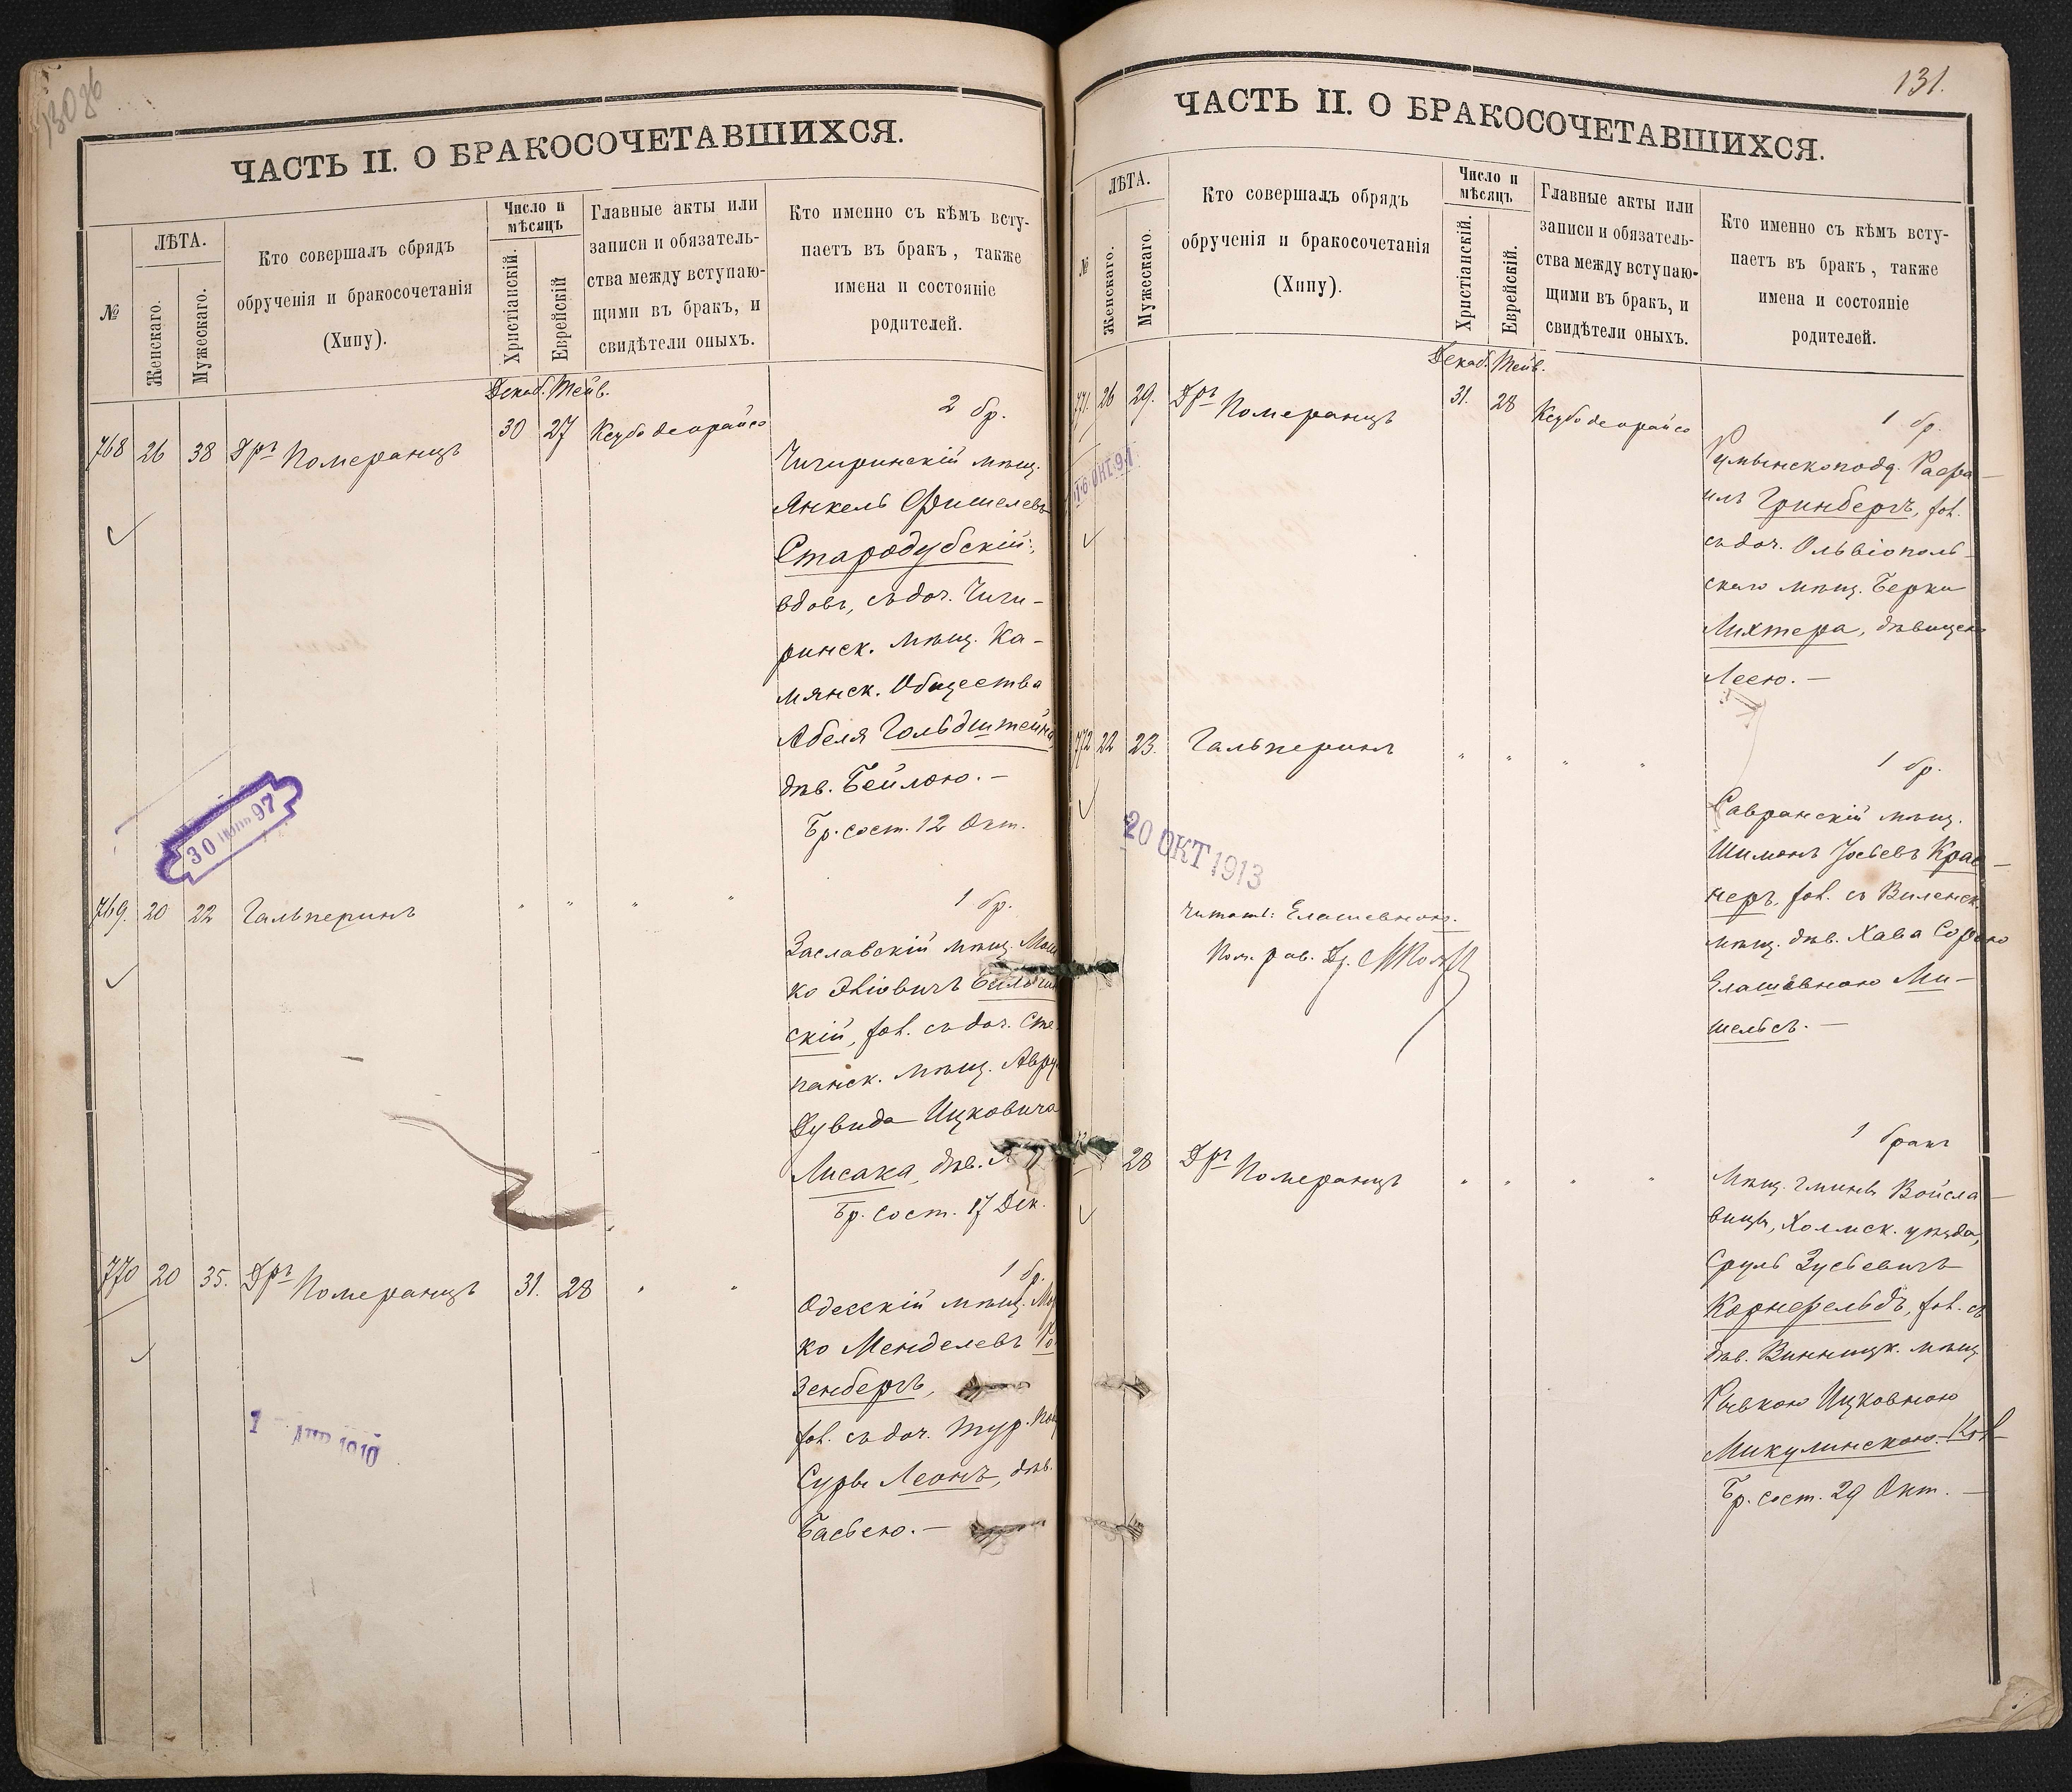 130 об
ЧАСТЬ II. О БРАКОСОЧЕТАВШИХСЯ.
№
ЛѢТА.
Женскаго.
Мужескаго.
Кто совершалъ обрядъ
обрученія и бракосочетанія
(Хипу).
Число и
мѣсяцъ
Христіанскій.
Еврейскій
Главные акты или
записи и обязатель-
ства между вступаю-
щими въ бракъ, и
свидѣтели оныхъ.
Кто именно съ кѣмъ всту-
паетъ въ бракъ, также
имена и состояніе
родителей.
Декаб. Тейв.
768 26 38 Дръ Померанцъ 30 27 Ксубо деорайсо
2 бр.
Чигиринскій мѣщ.
Янкель Фишелевъ
Стародубскій,
вдов., съ доч. Чиги-
ринск. мѣщ. Ка-
мянск. Общества
Абеля Гольдштейна
дѣв. Бейлою. —
Бр. сост. 12 Окт.
30 97
769. 20 22 Гальперинъ " " " "
1 бр.
Заславскій мѣщ. Мош
ко
скій, fol. съ доч. Сте
панск. мѣщ.
Дувида Ицковича
Лисака, дѣв.
Бр. сост. 17 Дек.
770 20 35. Дръ Померанцъ 31. 28 " "
1 бр.
Одесскій мѣщ.
ко Менделевъ Ро
зенбергъ,
fol. съ доч. Тур. под
Суры Леонъ, дѣв.
Басьею. —
1 АПР 1910
131.
ЧАСТЬ II. О БРАКОСОЧЕТАВШИХСЯ.
№
ЛѢТА.
Женскаго.
Мужескаго.
Кто совершалъ обрядъ
обрученія и бракосочетанія
(Хипу).
Число и
мѣсяцъ
Христіанскій.
Еврейскій.
Главные акты или
записи и обязатель-
ства между вступаю-
щими въ бракъ, и
свидѣтели оныхъ.
Кто именно съ кѣмъ всту-
паетъ въ бракъ, также
имена и состояніе
родителей.
Декаб. Тейв.
771. 26 29. Дръ Померанцъ 31. 28 Ксубо деорайсо
1 бр.
Румынскоподд. Рафа-
илъ Гринбергъ, fol.
съ доч. Ольвіополь-
скаго мѣщ. Берки
Лихтера, дѣвицею
Леею. —
772 22 23. Гальперинъ " " " "
1 бр.
Савранскій мѣщ.
Шимонъ Іосьевъ Крас-
неръ, fol. съ Виленск.
мѣщ. дѣв. Хава Сорою
Елашевною Ми-
шельсъ. —
20 ОКТ 1913
Читать: Елашевною.
Пом. рав. Др.
28 Дръ Померанцъ " " " "
1 бракъ
Мѣщ. гмины Войсла-
вицы, Холмск. уѣзда,
Сруль Зусьевичъ
Корнфельдъ, fol. съ
дѣв. Винницк. мѣщ
Рывкою Ицковною
Микулинскою.
Бр. сост. 29 Окт. —